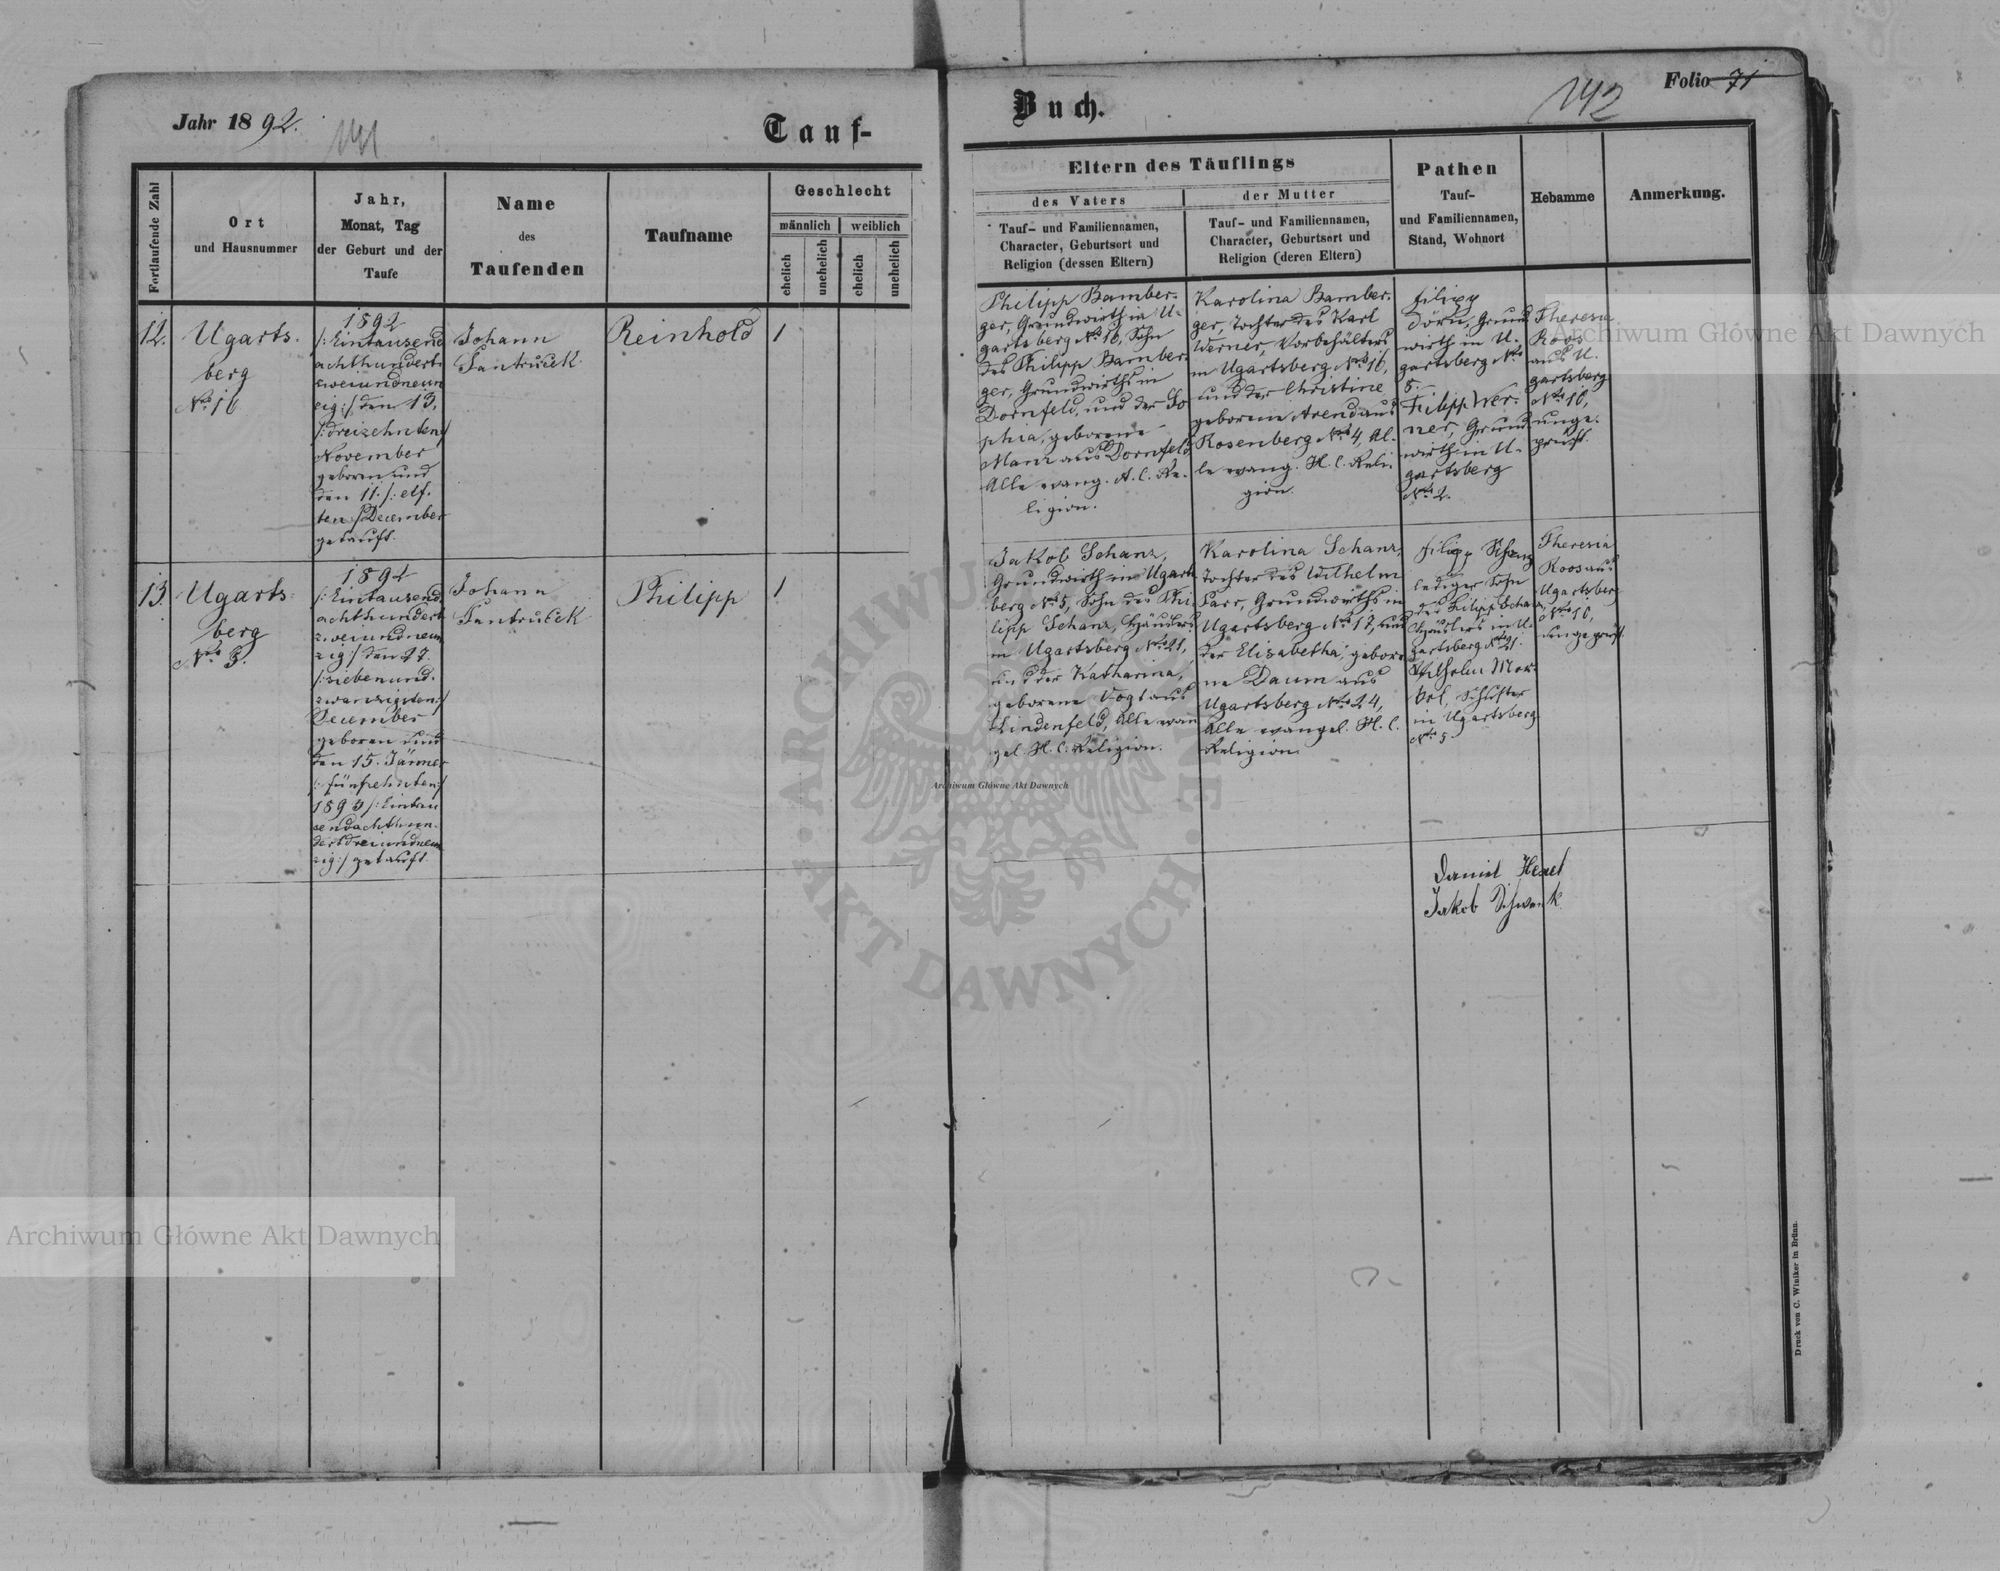 Jahr 1892.
141
Tauf-
Buch.
142
Folio 71
Fortlaufende Zahl
Ort
und Hausnummer
Jahr,
Monat, Tag
der Geburt und der
Taufe
Name
des
Taufenden
Taufname
Geschlecht
männlich
weiblich
ehelich
unehelich
ehelich
unehelich
Eltern des Täuflings
des Vaters
Tauf- und Familiennamen,
Character, Geburtsort und
Religion (dessen Eltern)
der Mutter
Tauf- und Familiennamen,
Character, Geburtsort und
Religion (deren Eltern)
Pathen
Tauf-
und Familiennamen,
Stand, Wohnort
Hebamme
Anmerkung.
12.
Ugarts-
berg
Nro 16
1892
/:Eintausend
achthundert
zweiundneun
zig:/ den 13.
/:dreizehnten:/
November
geboren und
den 11. /:elf-
ten:/ December
getauft.
Johann
Jantuček
Reinhold
1
Philipp Bamber-
ger, Grundwirth in U-
gartsberg Nro 16, Sohn
des Philipp Bamber-
ger, Grundwirths in
Dornfeld, und der So
phia, geborene
Manz aus Dornfeld
Alle evang. H. C. Re-
ligion.
Karolina Bamber-
ger, Tochter des Karl
Werner, Vorbehälters
in Ugartsberg Nro 16,
und der Christine
geborene Arend aus
Rosenberg Nro 4, Al-
le evang. H. C. Reli-
gion.
Filipp
Dörn, Grund
wirth in U-
gartsberg Nro
8.
Filipp Wer-
ner, Grund
wirth in U-
gartsberg
Nro 2.
Theresia
Roos
aus U-
gartsberg
Nro 10,
unge-
prüft.
13.
Ugarts-
berg
Nro 5.
1892
/:Eintausend
achthundert
zweiundneun
zig:/ den 27.
/:siebenund-
zwanzigsten:/
December
geboren und
den 15. Jänner
/:fünfzehnten:/
1893 /:Eintau
sendachthun-
dertdreiundneun
zig:/ getauft.
Johann
Jantuček
Philipp
1
Jakob Schanz,
Grundwirth in Ugarts
berg Nro 5, Sohn des Phi-
lipp Schanz, Häuslers
in Ugartsberg Nro 21,
und der Katharina,
geborene Vogt aus
Lindenfeld, Alle evan
gel. H. C. Religion.
Karolina Schanz,
Tochter des Wilhelm
Parr, Grundwirths in
Ugartsberg Nro 17, und
der Elisabetha, gebore-
ne Daum aus
Ugartsberg Nro 24,
Alle evangel. H. C.
Religion.
Filipp Schanz
lediger Sohn
des Filipp Schanz,
Häuslers in U-
gartsberg Nro 21.
Wilhelm Mer-
kel, Schuster
in Ugartsberg
Nro 5
Theresia
Roos aus
Ugartsberg
Nro 10,
ungeprüft.
Daniel
Jakob Schwenk
Druck von C. Winiker in Brünn.
Archiwum Główne Akt Dawnych
Archiwum Główne Akt Dawnych
Archiwum Główne Akt Dawnych
ARCHIWUM GŁÓWNE
AKT DAWNYCH